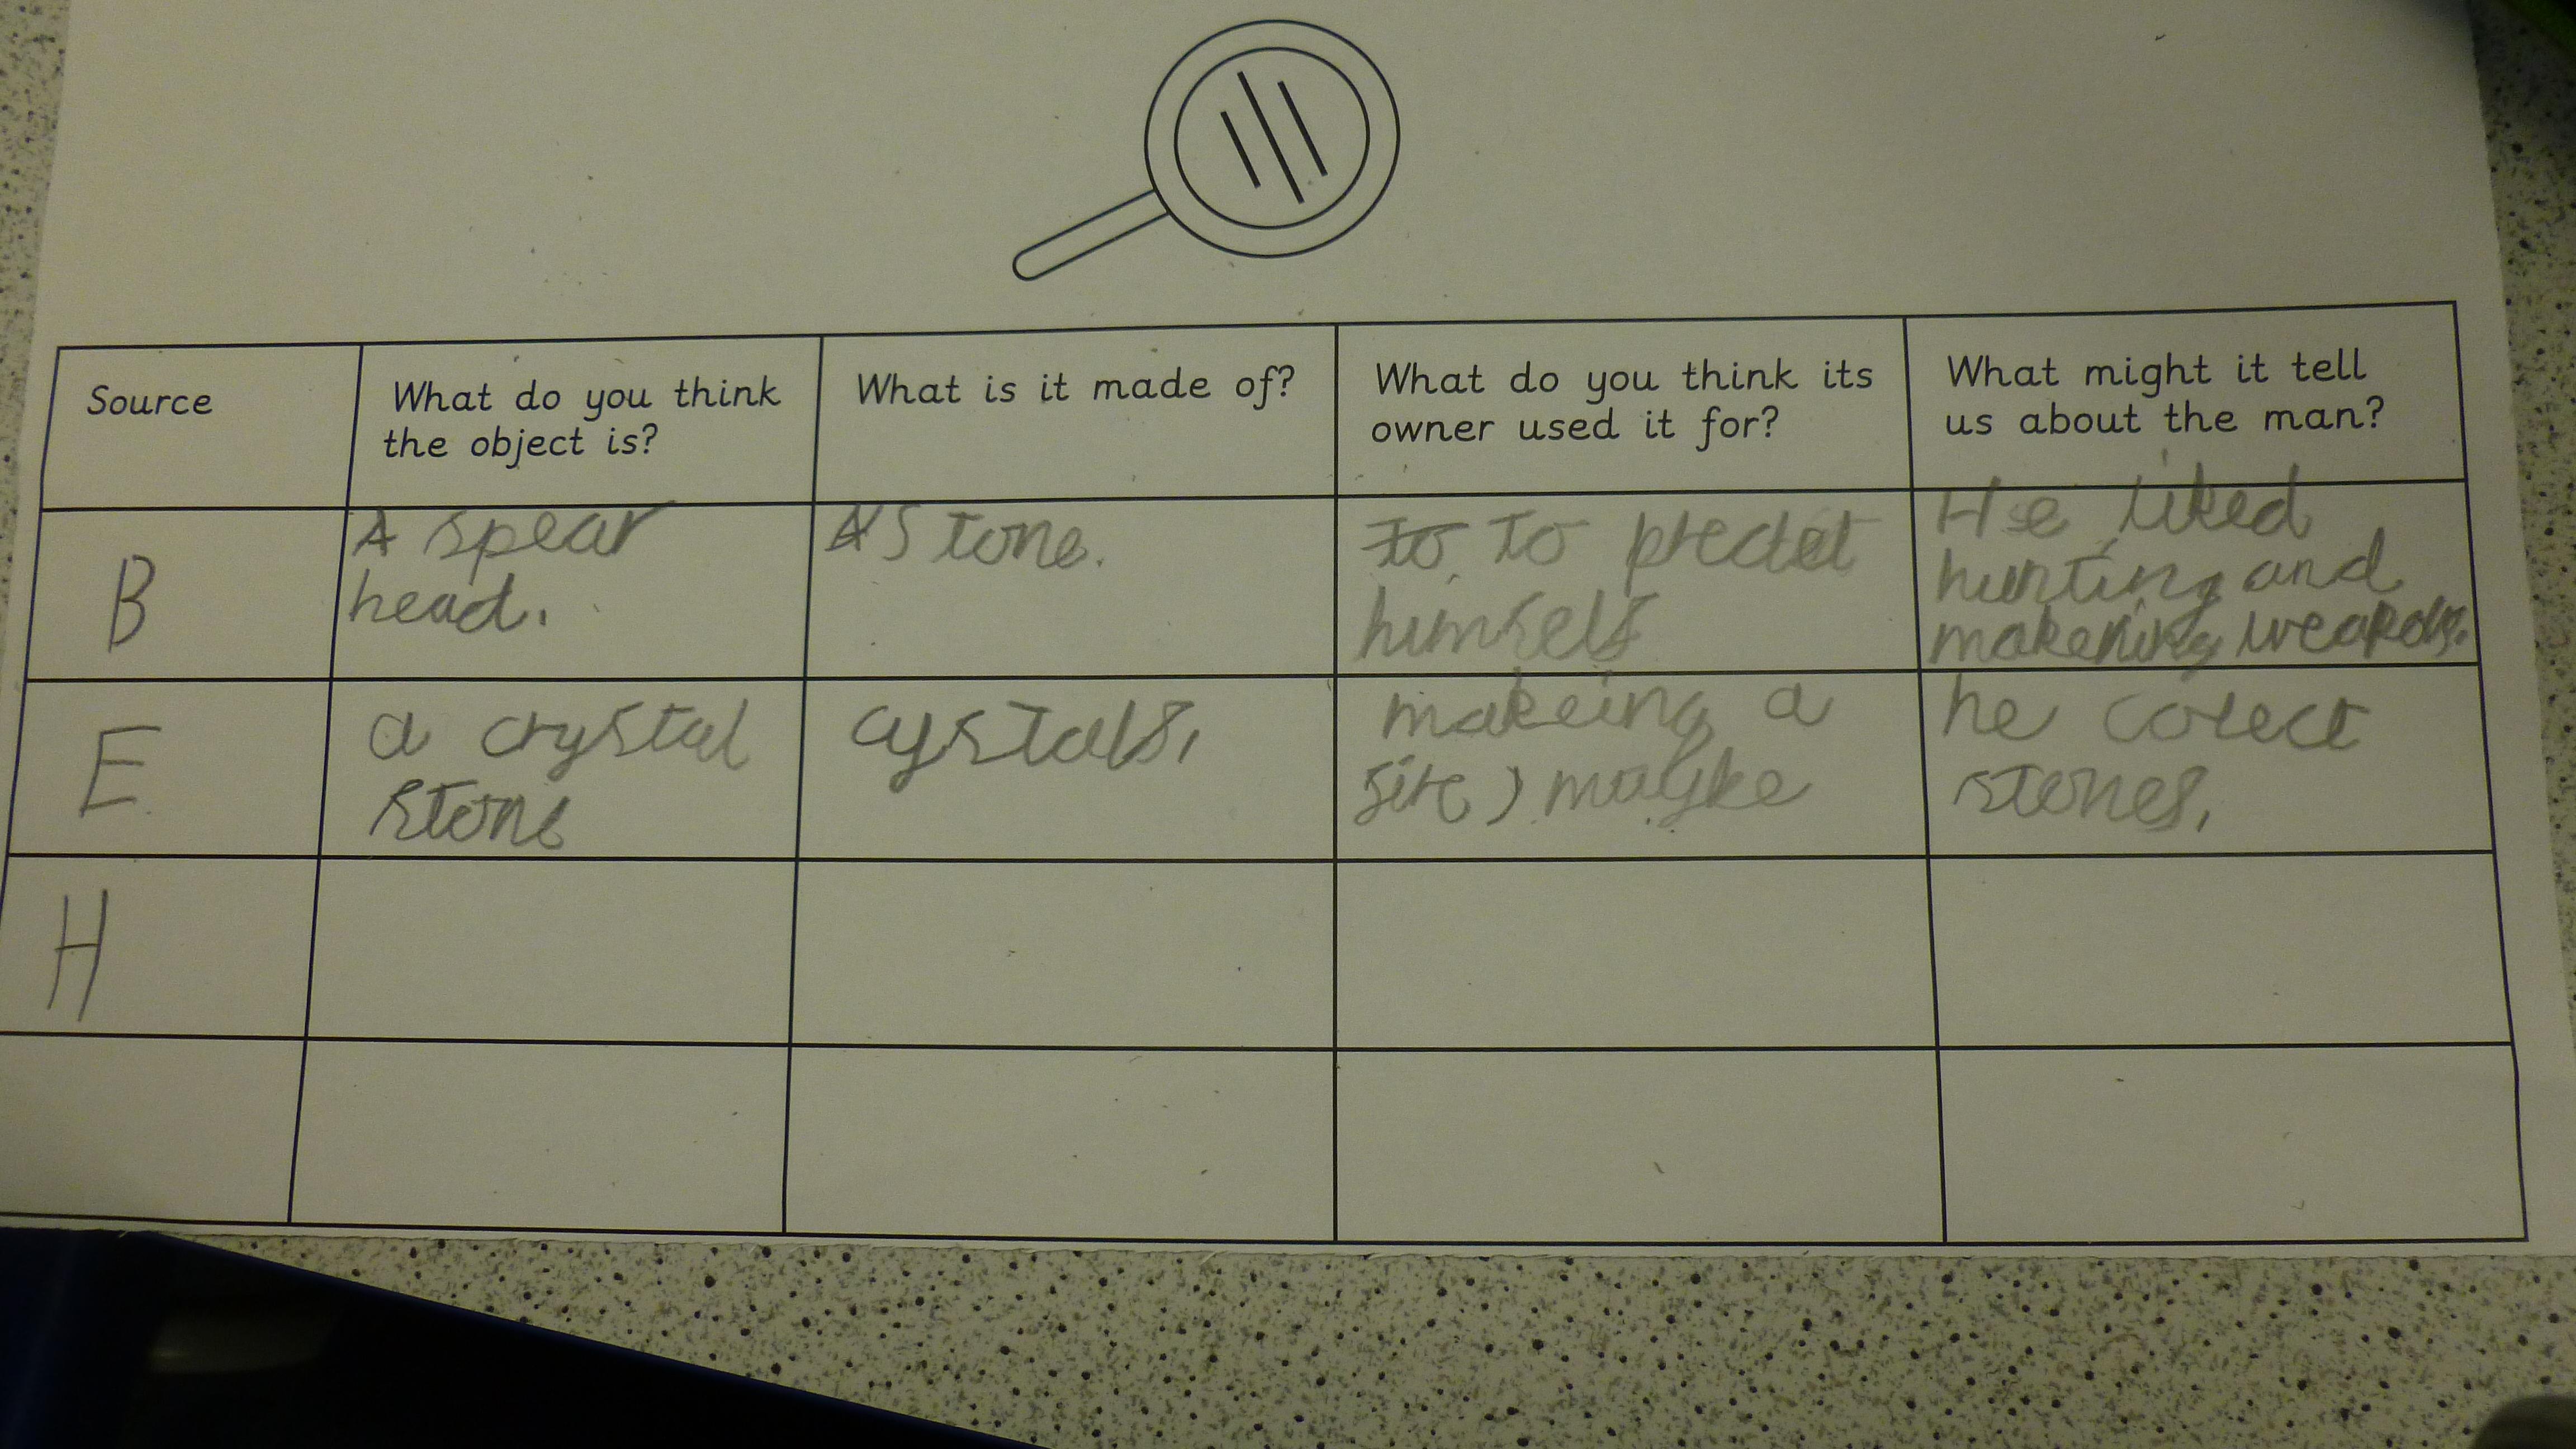 Source
What do you think
the object is?
What is it made of?
What do you think its
owner used it for?
What might it tell
us about the man?
B
A spear
head.
Stone.
to To
himself
He liked
hunting and
E
a crystal
stone
cystals,
makeing a
maybe
he colect
stones,
H